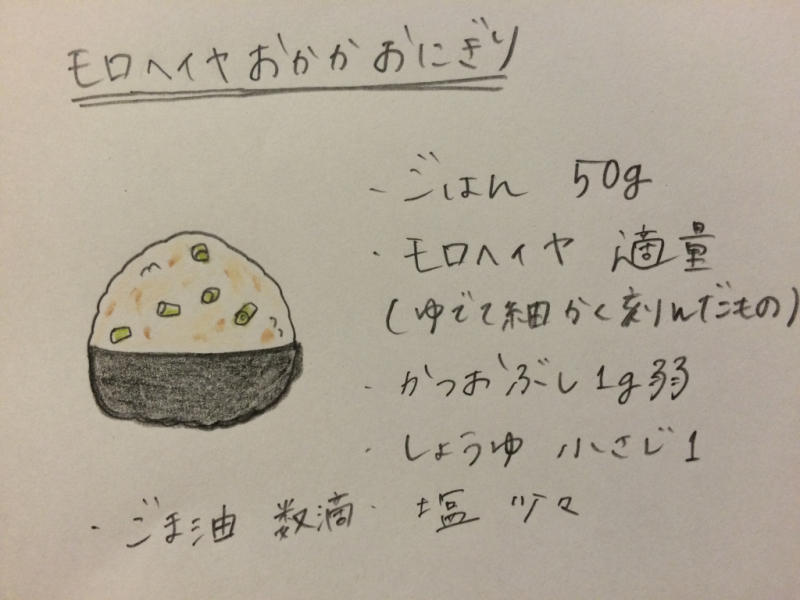 モロヘイヤおかかおにぎり
・ごはん 50g
・モロヘイヤ 適量
(ゆでて細かく刻んだもの)
・かつおぶし1g弱
・しょうゆ 小さじ1
・ごま油 数滴・塩 少々